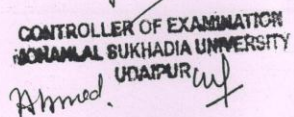 CONTROLLER OF EXAMINATION
MOHANLAL SUKHADIA UNIVERSITY
UDAIPUR
Ahmed.